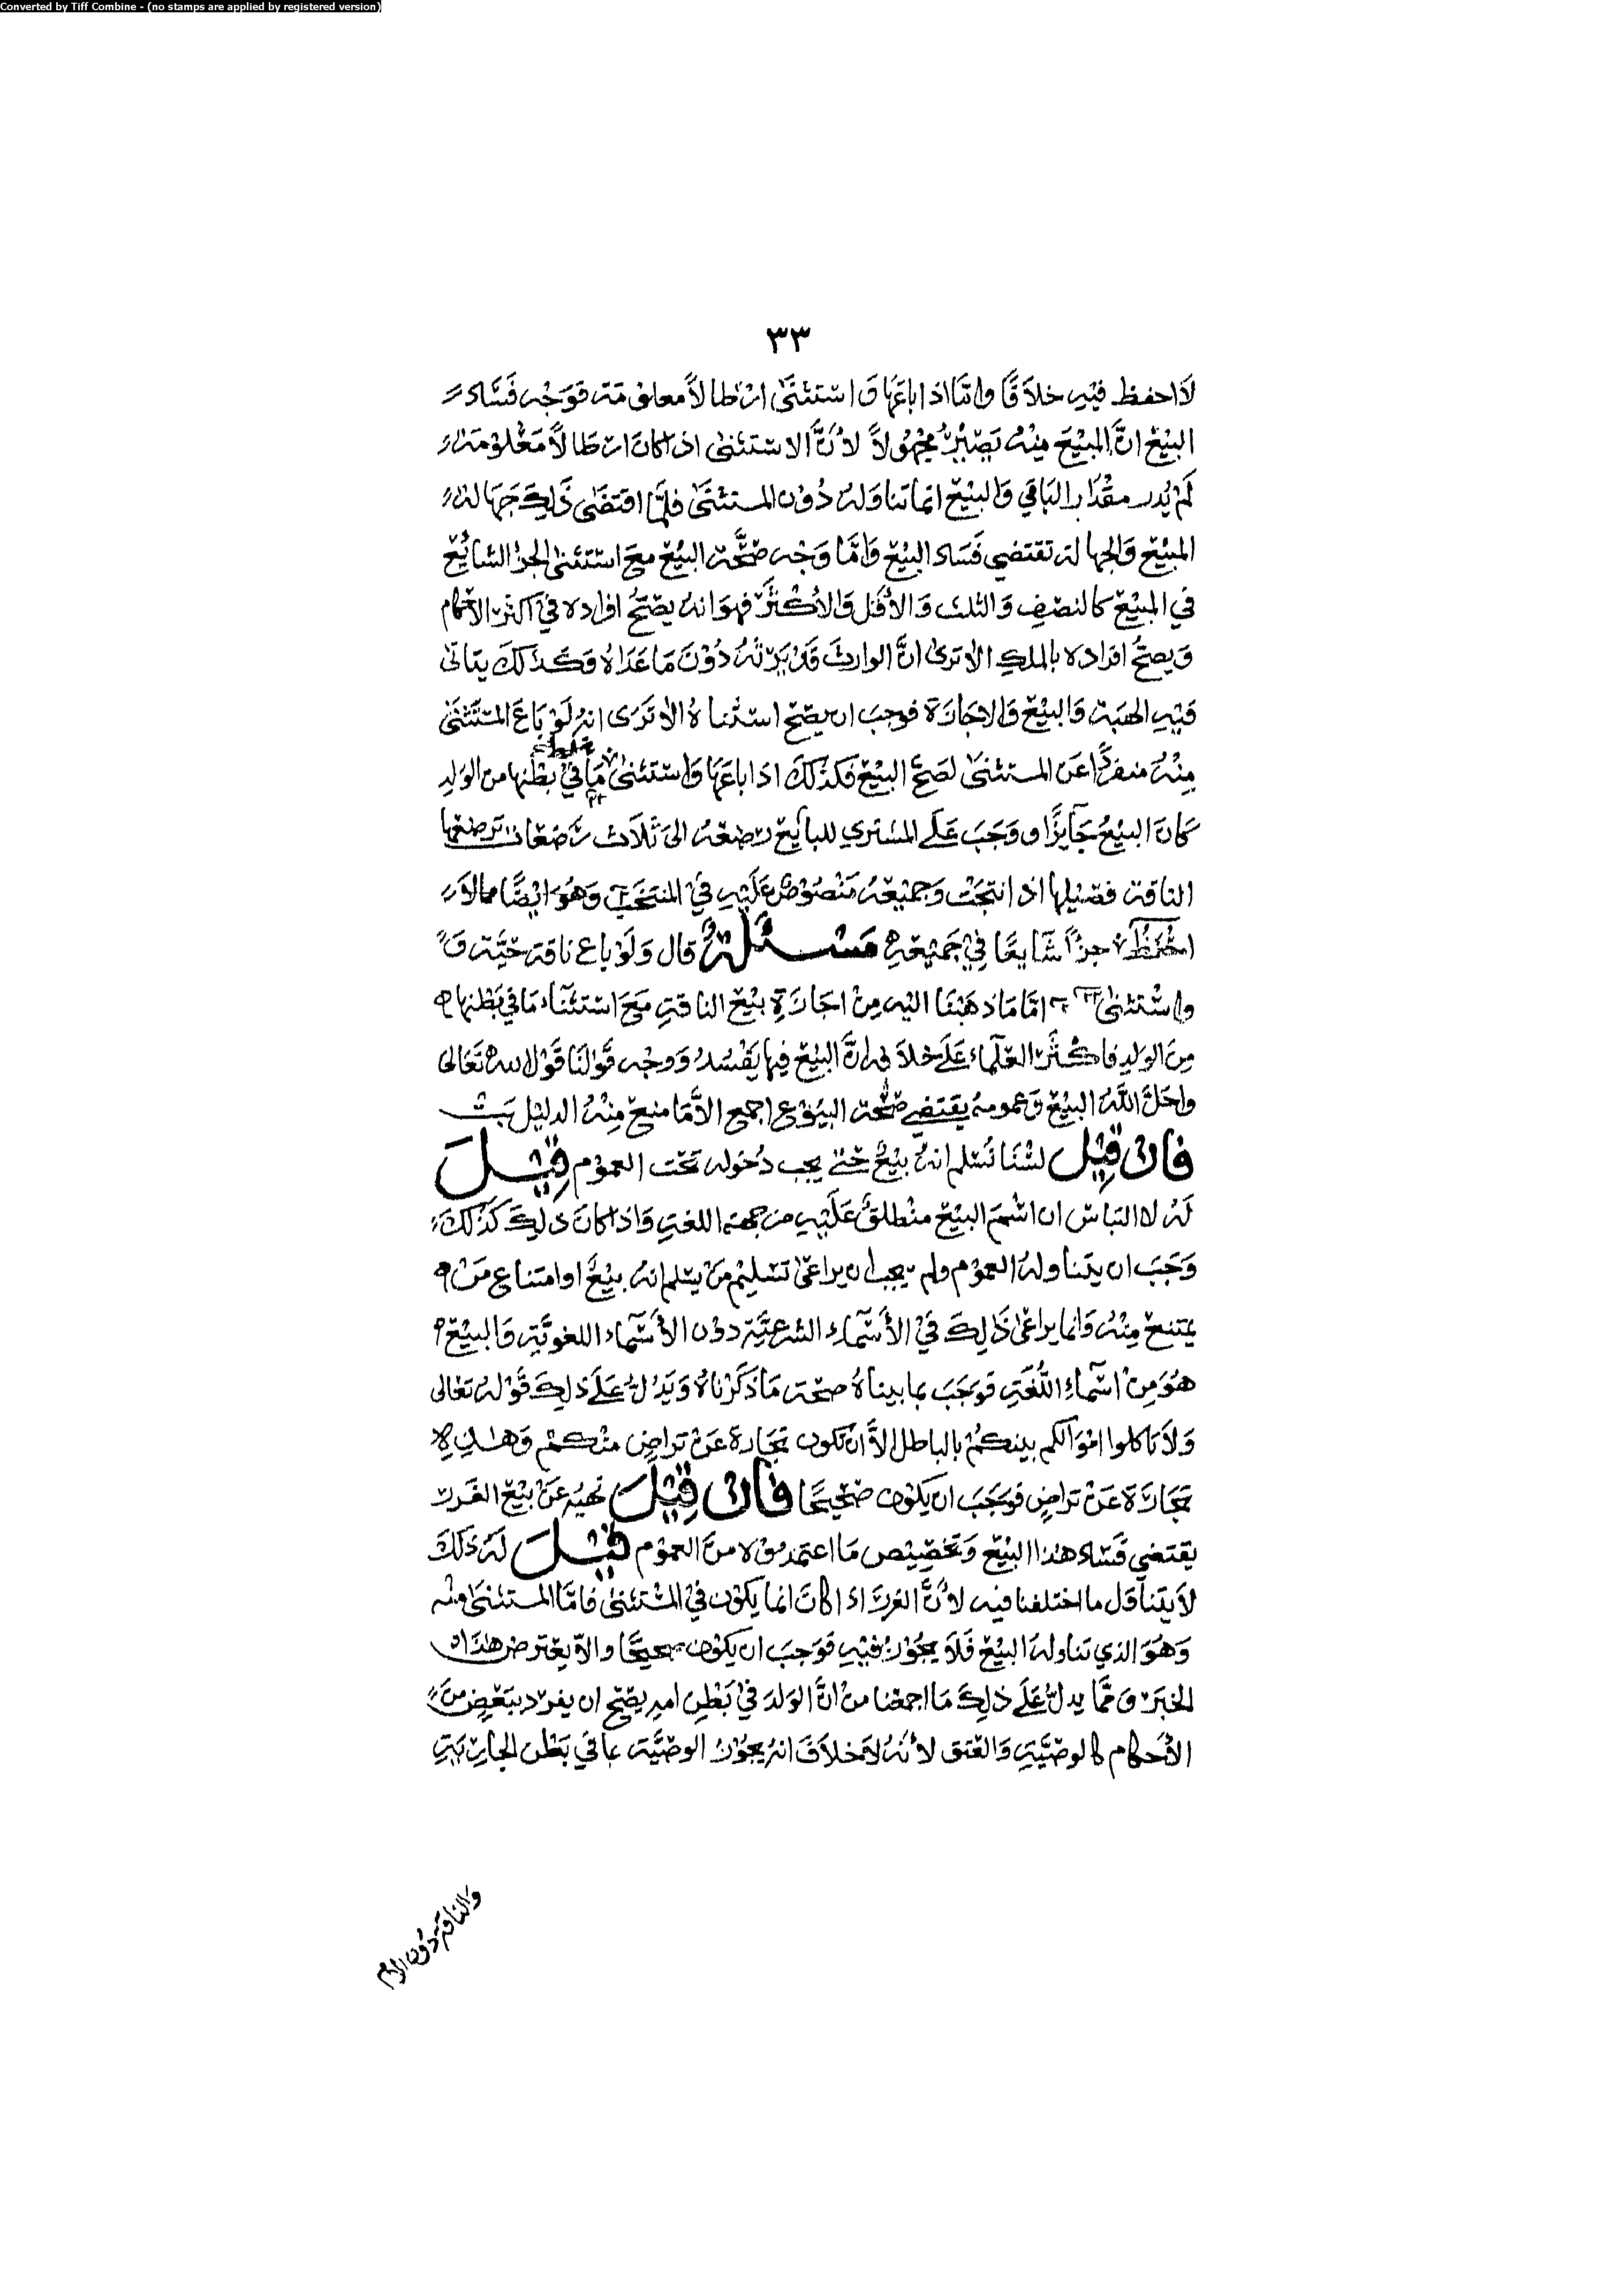 Converted by Tiff Combine - (no stamps are applied by registered version)
٣٣
لا احفظ فيه خلافا واما اذا باعها واستثنى ارطالا معلومة فوجه فساد
البيع ان المبيع منه يصير مجهولا لأن الاستثنى اذا كان ارطالا معلومة
لم يدر مقدار الباقي والبيع انما تناوله دون المستثنى فلما اقتضى ذلك جهالة
المبيع والجهالة تقتضي فساد البيع واما وجه صحة البيع مع استثنى الجزء الشائع
في المبيع كالنصف والثلث والأقل والأكثر فهو انه يصح افراده في اكثر الأحكام
ويصح افراده بالملك الا ترى ان الوارث قد يرثه دون ما عداه وكذلك يتاتى
فيه الهبة والبيع والاجارة فوجب ان يصح استثناه الا ترى انه لو باع المستثنى
منه منفردا عن المستثنى لصح البيع فكذلك اذا باعها واستثنى ما في بطنها من الولد
كان البيع جايزا ووجب على المشتري للبايع رضعه الى ثلاث رضعات ترضعها
الناقة فصيلها اذا نتجت وجميعه منصوص عليه في المنتخب وهو ايضا مما لا
احفظ جزأ شايعا في جميعه مسئلة قال ولو باع ناقة حية و
واستثنى اما ما ذهبنا اليه من اجازة بيع الناقة مع استثناء ما في بطنها
من الولد فاكثر العلماء على خلافه ان البيع فيها يفسد ووجه قولنا قول الله تعالى
واحل الله البيع وعمومه يقتضي صحة البيوع اجمع الا ما منع منه الدليل
فان قيل لسنا نسلم انه بيع حتى يجب دخوله تحت العموم قيل
له لا التباس ان اسم البيع منطلق عليه من جهة اللغة واذا كان ذلك كذلك
وجب ان يتناوله العموم ولم يجب ان يراعى تسليم من يسلم انه بيع او امتناع من
يمتنع منه وانما يراعى ذلك في الأسماء الشرعية دون الأسماء اللغوية والبيع
هو من اسماء اللغة فوجب بما بيناه صحة ما ذكرناه ويدل على ذلك قوله تعالى
ولا تاكلوا اموالكم بينكم بالباطل الا ان تكون تجارة عن تراض منكم وهذه
تجارة عن تراض فوجب ان يكون صحيحا فان قيل نهيه عن بيع الغرر
يقتضي فساد هذا البيع وتخصيص ما اعتمدتموه من العموم قيل له ذلك
لا يتناول ما اختلفنا فيه لأن الغرر اذا كان انما يكون في المستثنى فاما المستثنى منه
وهو الذي تناوله البيع فلا يجوز فيه فوجب ان يكون صحيحا والا يعترض هذا
الخبر ومما يدل على ذلك ما اجمعنا من ان الولد في بطن امه يصح ان يفرد ببعض من
الأحكام كالوصية والعتق لأنه لا خلاف انه يجوز الوصية بما في بطن الجارية
والناقة دون الام